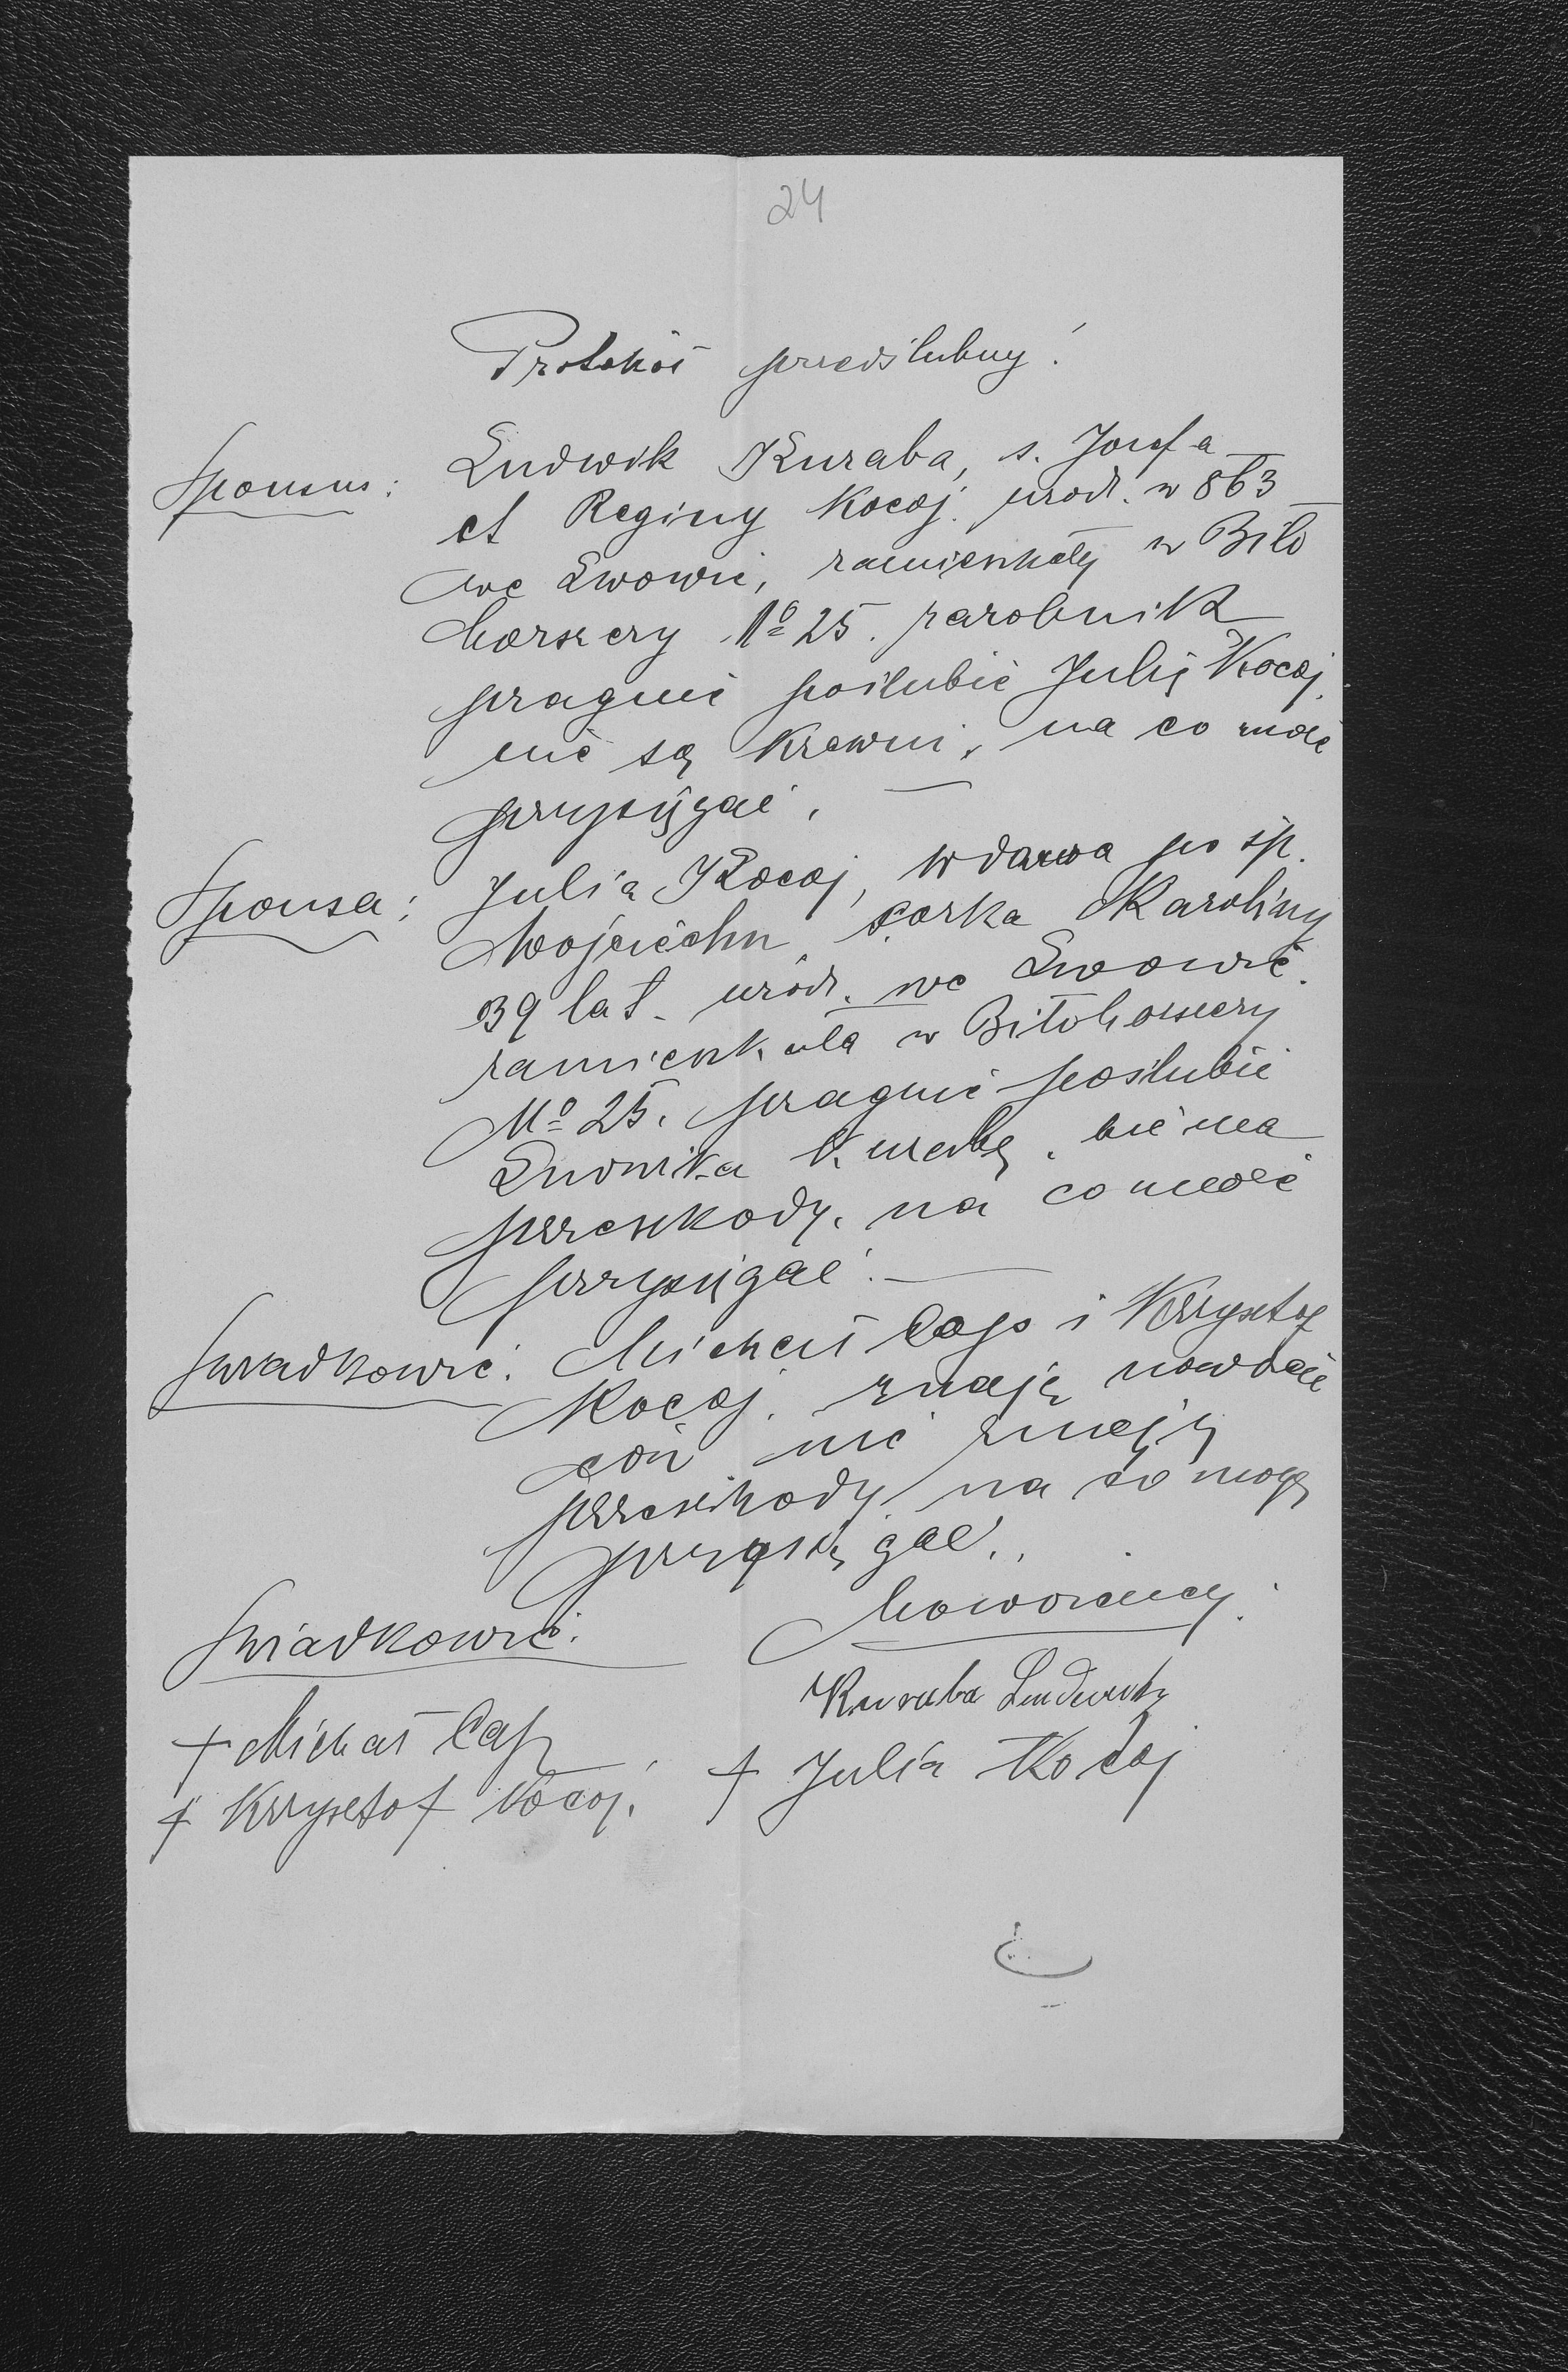 24
Protokół przedślubny!
Sponsus: Ludwik Kuraba, s. Józefa
et Reginy Kocaj. urodz. w 863
we Lwowie, zamieszkały w Biło
horszczy No 25. zarobnik
pragnie poślubić Julię Kocaj.
nie są krewni, na co może
przysięgać.
Sponsa: Julia Kocaj, wdowa po śp.
Wojciechu, córka Karoliny
39 lat. urodz. we Lwowie.
zamieszkała w Biłohorszczy
No 25. pragnie poślubić
Ludwika Kurabę. nie ma
przeszkody. na co może
przysięgać.
Świadkowie: Michał Cap i Krzysztof
Kocaj. znają nowożeń
ców nie znają
przeszkody na co mogą
przysięgać.
Świadkowie: Nowożeńcy.
Kuraba Ludwik
+ Michał Cap
+ Julia Kocaj
+ Krzysztof Kocaj.